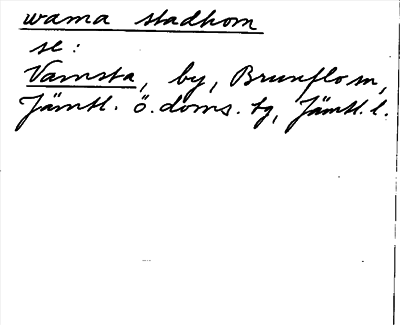 wama stadhom
se:
Vamsta, by, Brunflo sn,
Jämtl. ö. doms. tg, Jämtl. l.